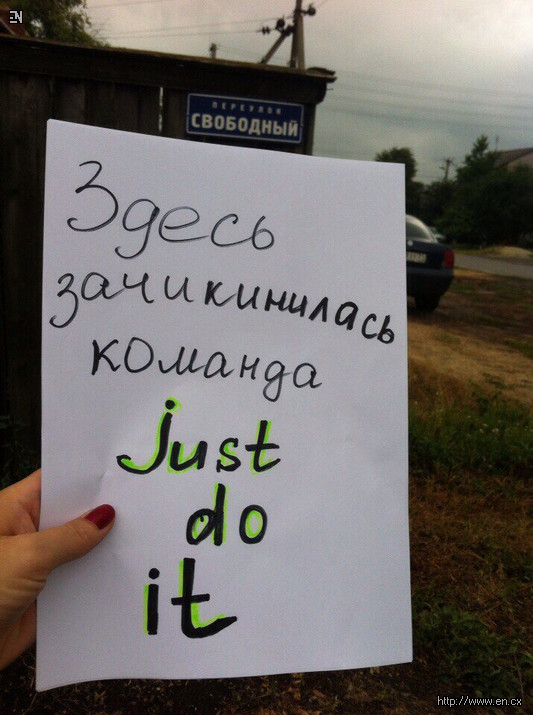 EN
ПЕРЕУЛОК
СВОБОДНЫЙ
Здесь
зачикинилась
команда
just
do
it
http://www.en.cx